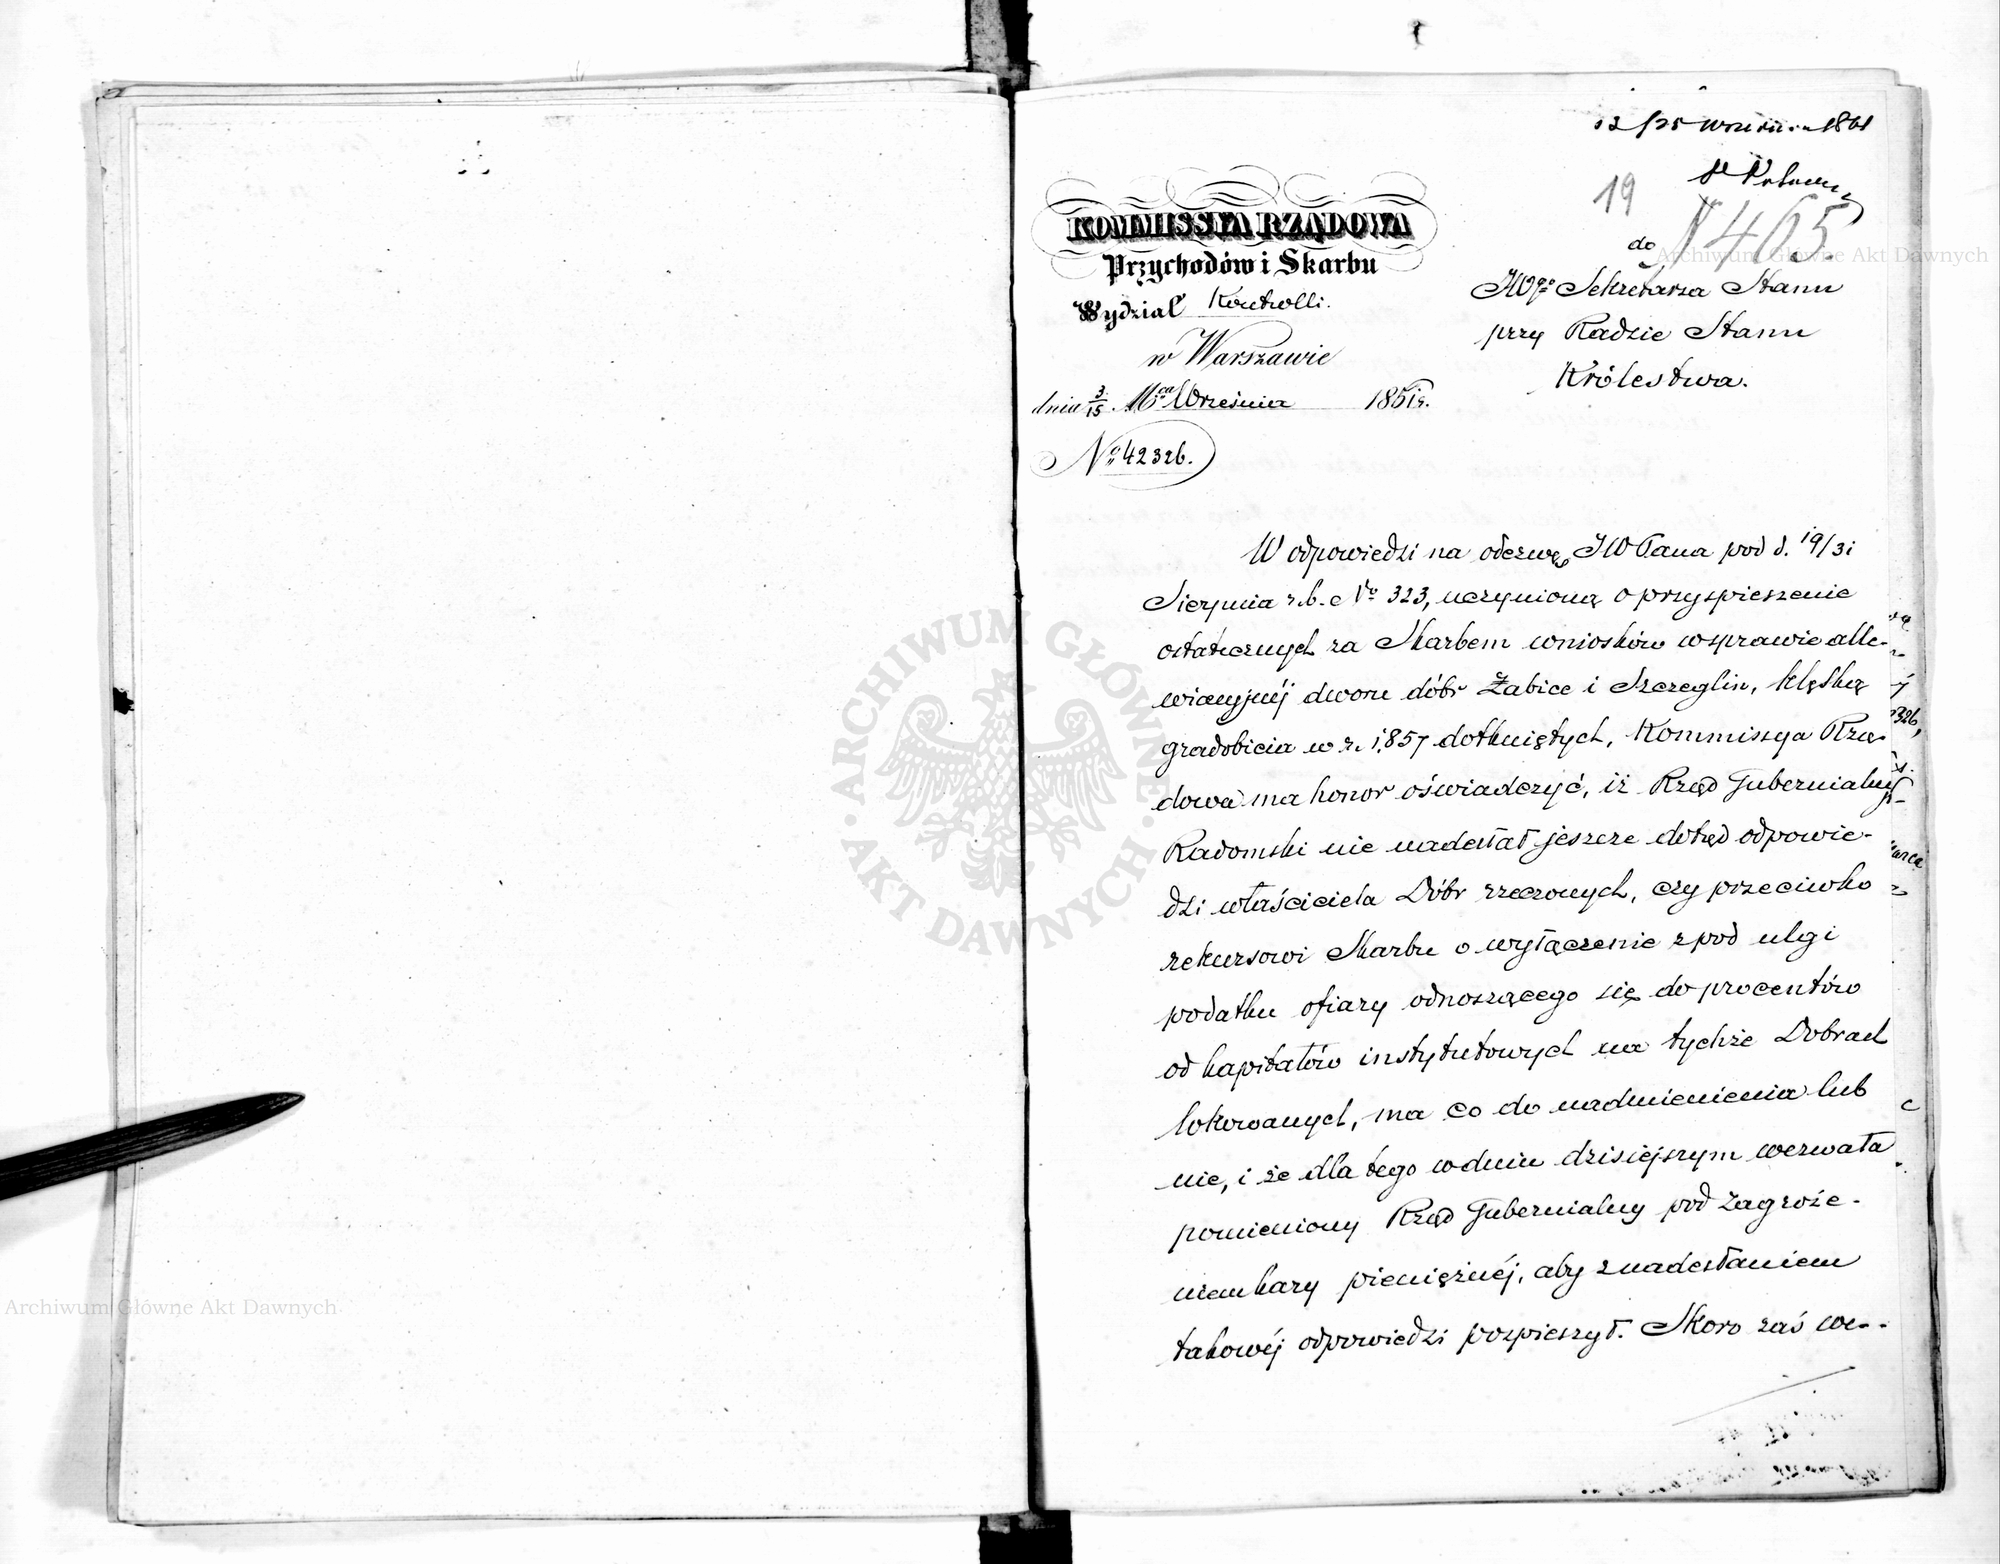 12/25 września 1861
19
N 465
KOMMISSYA RZĄDOWA
Przychodów i Skarbu
Wydział Kontrolli.
w Warszawie
dnia 3/15 Mca Września 1861 r.
No 42326.
do
JWgo Sekretarza Stanu
przy Radzie Stanu
Królestwa.
W odpowiedzi na odezwę JW Pana pod d. 19/31
Sierpnia r.b. No 323, uczynioną o przyspieszenie
ostatecznych za Skarbem wniosków w sprawie alle-
wiacyjnéj dworu dóbr Żabice i Szczeglin, klęską
gradobicia w r. 1857 dotkniętych, Kommissya Rzą-
dowa ma honor oświadczyć, iż Rząd Gubernialny
Radomski nie nadesłał jeszcze dotąd odpowie-
dzi właściciela Dóbr rzeczonych, czy przeciwko
rekursowi Skarbu o wyłączenie z pod ulgi
podatku ofiary odnoszącego się do procentów
od kapitałów instytutowych na tychże Dobrach
lokowanych, ma co do nadmienienia lub
nie, i że dla tego w dniu dzisiejszym wezwała
pomieniony Rząd Gubernialny pod zagroże-
niem kary pieniężnéj, aby z nadesłaniem
takowéj odpowiedzi pospieszył. Skoro zaś we-
ARCHIWUM GŁÓWNE AKT DAWNYCH
Archiwum Główne Akt Dawnych
Archiwum Główne Akt Dawnych